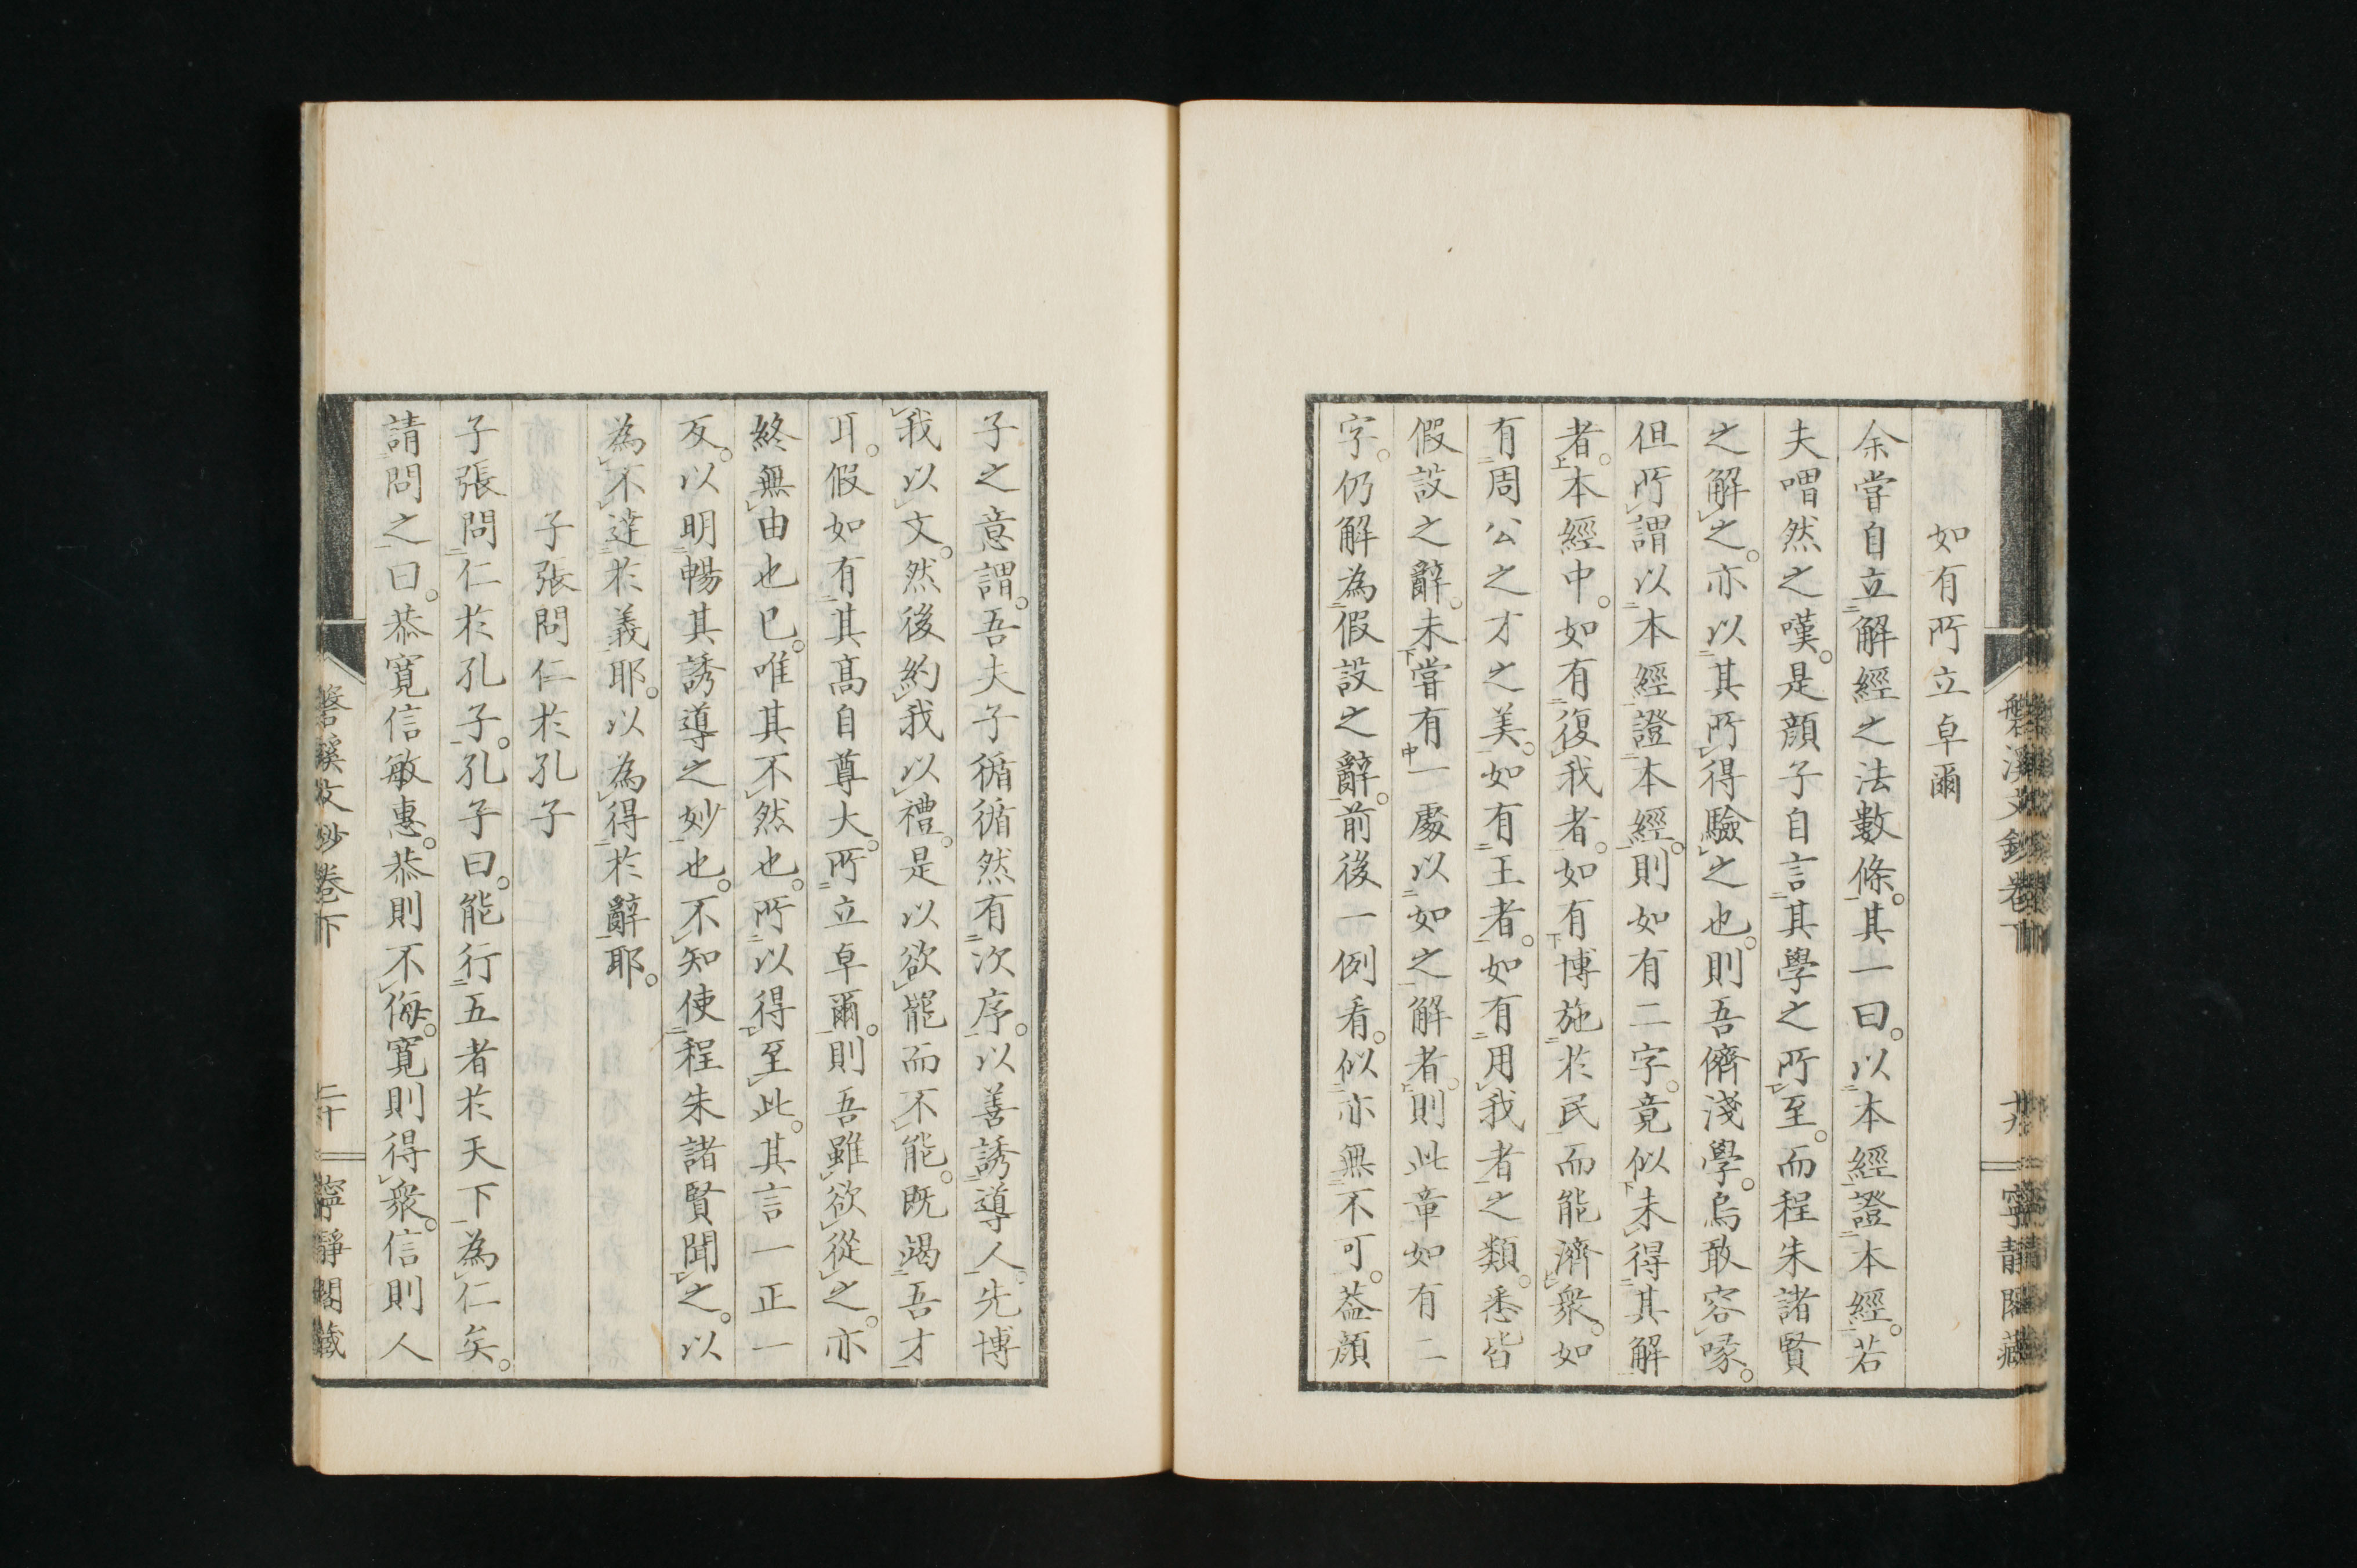 如有所立卓爾
余嘗自立解經之法數條。其一曰。以本經證本經。若
夫喟然之嘆。是顔子自言其學之所至。而程朱諸賢
之解之。亦以其所得驗之也。則吾儕淺學。烏敢容喙。
但所謂以本經證本經。則如有二字。竟似未得其解
者。本經中。如有復我者。如有博施於民而能濟衆。如
有周公之才之美。如有王者。如有用我者之類。悉皆
假設之辭。未嘗有一處以如之解者。則此章如有二
字。仍解為假設之辭。前後一例看。似亦無不可。蓋顔
磐溪文鈔卷下 十九 寧靜閣藏
子之意謂。吾夫子循循然有次序。以善誘導人。先博
我以文。然後約我以禮。是以欲罷而不能。既竭吾才
耳。假如有其髙自尊大。所立卓爾。則吾雖欲從之。亦
終無由也已。唯其不然也。所以得至此。其言一正一
反。以明暢其誘導之妙也。不知使程朱諸賢聞之。以
為不達於義耶。以為得於辭耶。
子張問仁於孔子
子張問仁於孔子。孔子曰。能行五者於天下為仁矣。
請問之曰。恭寛信敏惠。恭則不侮。寛則得衆。信則人
磐溪文鈔卷下 二十 寧靜閣藏